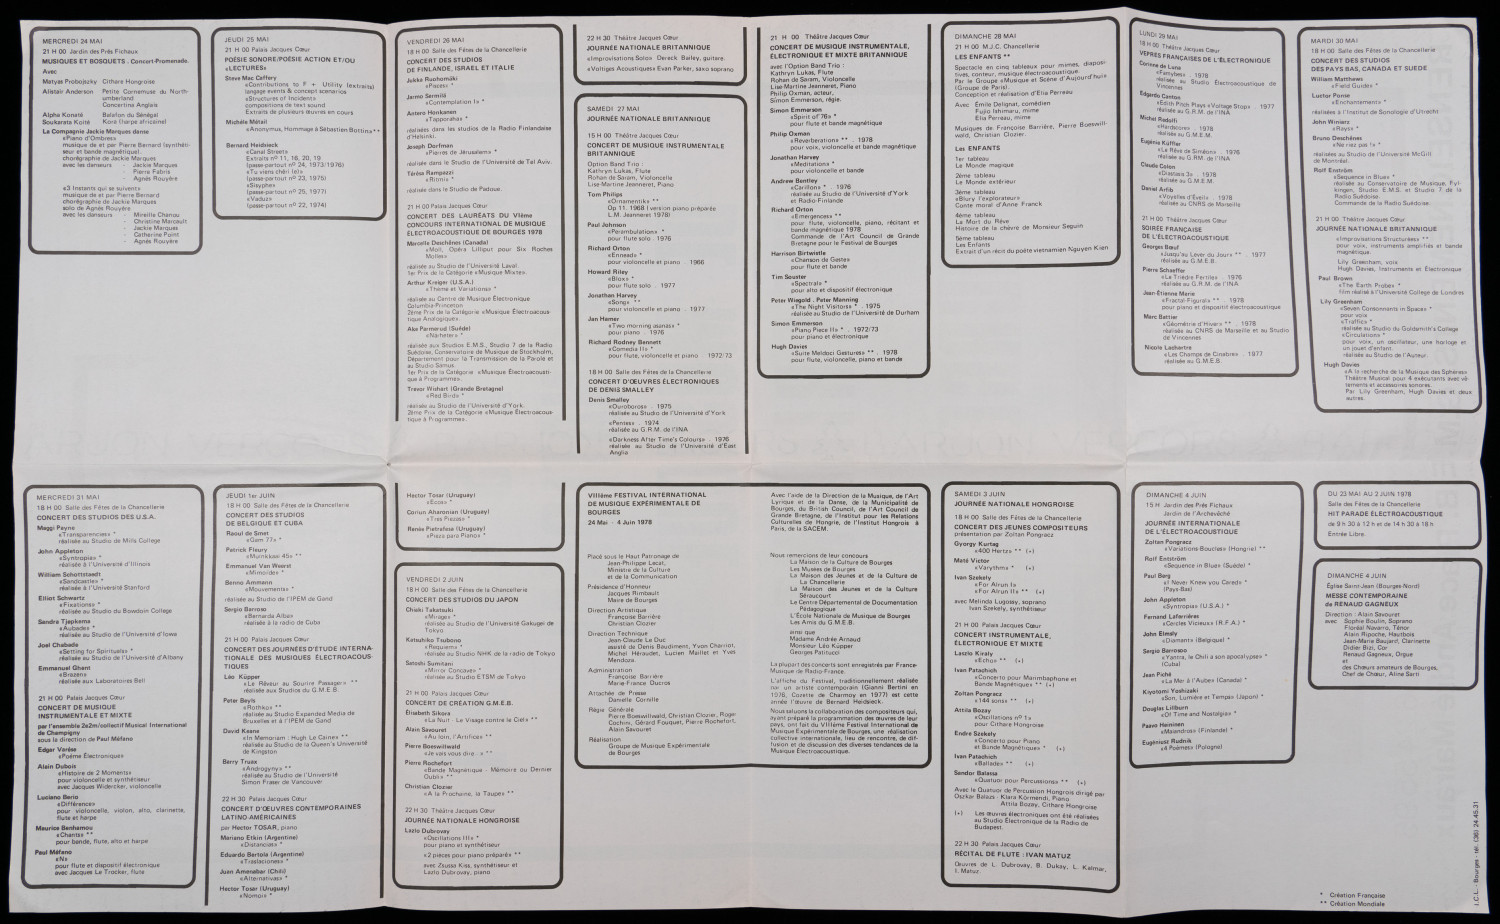 MERCREDI 24 MAI
21 H 00 Jardin des Prés Fichaux
MUSIQUES ET BOSQUETS . Concert-Promenade.
Avec
Matyas Probojazky Cithare Hongroise
Alistair Anderson Petite Cornemuse du North-
umberland
Concertina Anglais
Alpha Konaté Balafon du Sénégal
Soukarata Koité Kora (harpe africaine)
La Compagnie Jackie Marques danse
«Piano d'Ombres»
musique de et par Pierre Bernard (synthéti-
seur et bande magnétique).
chorégraphie de Jackie Marques
avec les danseurs - Jackie Marques
- Pierre Fabris
- Agnès Rouyère
«3 Instants qui se suivent»
musique de et par Pierre Bernard
chorégraphie de Jackie Marques
solo de Agnès Rouyère
avec les danseurs - Mireille Chanou
- Christine Marcault
- Jackie Marques
- Catherine Point
- Agnès Rouyère
JEUDI 25 MAI
21 H 00 Palais Jacques Cœur
POÉSIE SONORE/POÉSIE ACTION ET/OU
«LECTURES»
Steve Mac Caffery
«Contributions to F + Utility (extraits)
langage events & concept scenarios
«Structures of Incident»
compositions de text sound
Extraits de plusieurs œuvres en cours
Michèle Métail
«Anonymus, Hommage à Sébastien Bottin» **
Bernard Heidsieck
«Canal Street»
Extraits nº 11, 16, 20, 19
(passe-partout nº 24, 1973/1976)
«Tu viens chéri (e)»
(passe-partout nº 23, 1975)
«Sisyphe»
(passe-partout nº 25, 1977)
«Vaduz»
(passe-partout nº 22, 1974)
VENDREDI 26 MAI
18 H 00 Salle des Fêtes de la Chancellerie
CONCERT DES STUDIOS
DE FINLANDE, ISRAEL ET ITALIE
Jukka Ruohomäki
«Pazas» *
Jarmo Sermilä
«Contemplation I» *
Antero Honkanen
«Tapporaha» *
réalisées dans les studios de la Radio Finlandaise
d'Helsinki.
Joseph Dorfman
«Pierres de Jérusalem» *
réalisée dans le Studio de l'Université de Tel Aviv.
Térésa Rampazzi
«Ritmi» *
réalisée dans le Studio de Padoue.
21 H 00 Palais Jacques Cœur
CONCERT DES LAURÉATS DU VIème
CONCOURS INTERNATIONAL DE MUSIQUE
ÉLECTROACOUSTIQUE DE BOURGES 1978
Marcelle Deschênes (Canada)
«Moll, Opéra Lilliput pour Six Roches
Molles»
réalisée au Studio de l'Université Laval.
1er Prix de la Catégorie «Musique Mixte».
Arthur Kreiger (U.S.A.)
«Thème et Variations» *
réalisée au Centre de Musique Électronique
Columbia-Princeton
2ème Prix de la Catégorie «Musique Électroacous-
tique Analogique».
Ake Parmerud (Suède)
«Närheten» *
réalisée aux Studios E.M.S., Studio 7 de la Radio
Suédoise, Conservatoire de Musique de Stockholm,
Département pour la Transmission de la Parole et
au Studio Samus.
1er Prix de la Catégorie «Musique Électroacousti-
que à Programme».
Trevor Wishart (Grande Bretagne)
«Red Bird» *
réalisée au Studio de l'Université d'York.
2ème Prix de la Catégorie «Musique Électroacous-
tique à Programme».
22 H 30 Théâtre Jacques Cœur
JOURNÉE NATIONALE BRITANNIQUE
«Improvisations Solo» Dereck Bailey, guitare.
«Voltiges Acoustiques» Evan Parker, saxo soprano
SAMEDI 27 MAI
JOURNÉE NATIONALE BRITANNIQUE
15 H 00 Théâtre Jacques Cœur
CONCERT DE MUSIQUE INSTRUMENTALE
BRITANNIQUE
Option Band Trio :
Kathryn Lukas, Flute
Rohan de Saram, Violoncelle
Lise-Martine Jeanneret, Piano
Tom Philips
«Ornamentik» **
Op 11. 1968 (version piano préparée
L.M. Jeanneret 1978)
Paul Johnson
«Perambulation» *
pour flute solo . 1976
Richard Orton
«Ennead» *
pour violoncelle et piano . 1966
Howard Riley
«Blox» *
pour flute solo . 1977
Jonathan Harvey
«Song» **
pour violoncelle et piano . 1977
Jan Hamer
«Two morning asanas» *
pour piano . 1976
Richard Rodney Bennett
«Comedia II» *
pour flute, violoncelle et piano . 1972/73
18 H 00 Salle des Fêtes de la Chancellerie
CONCERT D'ŒUVRES ÉLECTRONIQUES
DE DENIS SMALLEY
Denis Smalley
«Ouroboros» . 1975
réalisée au Studio de l'Université d'York
«Pentes» . 1974
réalisée au G.R.M. de l'INA
«Darkness After Time's Colours» . 1976
réalisée au Studio de l'Université d'East
Anglia
21 H 00 Théâtre Jacques Cœur
CONCERT DE MUSIQUE INSTRUMENTALE,
ÉLECTRONIQUE ET MIXTE BRITANNIQUE
avec l'Option Band Trio :
Kathryn Lukas, Flute
Rohan de Saram, Violoncelle
Lise-Martine Jeanneret, Piano
Philip Oxman, acteur,
Simon Emmerson, régie.
Simon Emmerson
«Spirit of 76» *
pour flute et bande magnétique
Philip Oxman
«Reverberation» ** . 1978
pour voix, violoncelle et bande magnétique
Jonathan Harvey
«Meditation» *
pour violoncelle et bande
Andrew Bentley
«Carillon» * . 1976
réalisée au Studio de l'Université d'York
et Radio-Finlande
Richard Orton
«Emergences» **
pour flute, violoncelle, piano, récitant et
bande magnétique 1978
Commande de l'Art Council de Grande
Bretagne pour le Festival de Bourges
Harrison Birtwistle
«Chanson de Geste»
pour flute et bande
Tim Souster
«Spectral» *
pour alto et dispositif électronique
Peter Wiegold . Peter Manning
«The Night Visitors» * . 1975
réalisée au Studio de l'Université de Durham
Simon Emmerson
«Piano Piece II» * . 1972/73
pour piano et électronique
Hugh Davies
«Suite Meldoci Gestures» ** . 1978
pour flute, violoncelle, piano et bande
DIMANCHE 28 MAI
21 H 00 M.J.C. Chancellerie
LES ENFANTS **
Spectacle en cinq tableaux pour mimes, disposi-
tives, conteur, musique électroacoustique.
Par le Groupe «Musique et Scène d'Aujourd'hui»
(Groupe de Paris).
Conception et réalisation d'Elia Perreau
Avec Émile Delignat, comédien
Fulio Ishimaru, mime
Elia Perreau, mime
Musiques de Françoise Barrière, Pierre Boeswill-
wald, Christian Clozier.
Les ENFANTS
1er tableau
Le Monde magique
2ème tableau
Le Monde extérieur
3ème tableau
«Blury l'explorateur»
Conte moral d'Anne Franck
4ème tableau
La Mort du Rêve
Histoire de la chèvre de Monsieur Seguin
5ème tableau
Les Enfants
Extrait d'un récit du poète vietnamien Nguyen Kien
LUNDI 29 MAI
18 H 00 Théâtre Jacques Cœur
VÊPRES FRANÇAISES DE L'ÉLECTRONIQUE
Corinne de Luna
«Famybes» . 1978
réalisée au Studio Électroacoustique de
Vincennes
Edgardo Canton
«Edith Pitch Plays «Voltage Stop» . 1977
réalisée au G.R.M. de l'INA
Michel Redolfi
«Hardscore» . 1978
réalisée au G.M.E.M.
Eugénie Küffler
«Le Rêve de Siméon» . 1976
réalisée au G.RM. de l'INA
Claude Colon
«Diastasis 3» . 1978
réalisée au G.M.E.M.
Daniel Arfib
«Voyelles d'Éveil» . 1978
réalisée au CNRS de Marseille
21 H 00 Théâtre Jacques Cœur
SOIRÉE FRANÇAISE
DE L'ÉLECTROACOUSTIQUE
Georges Bœuf
«Jusqu'au Lever du Jour» ** . 1977
réalisée au G.M.E.B.
Pierre Schaeffer
«Le Trièdre Fertile» . 1976
réalisée au G.R.M. de l'INA
Jean-Étienne Marie
«Fractal-Figural» ** . 1978
pour piano et dispositif électroacoustique
Marc Battier
«Géométrie d'Hiver» ** . 1978
réalisée au CNRS de Marseille et au Studio
de Vincennes
Nicole Lachartre
«Les Champs de Cinabre» . 1977
réalisée au G.M.E.B.
MARDI 30 MAI
18 H 00 Salle des Fêtes de la Chancellerie
CONCERT DES STUDIOS
DES PAYS BAS, CANADA ET SUEDE
William Matthews
«Field Guide» *
Luctor Ponse
«Enchantement» *
réalisées à l'Institut de Sonologie d'Utrecht
John Winiarz
«Rays» *
Bruno Deschênes
«Ne riez pas !» *
réalisées au Studio de l'Université McGill
de Montréal.
Rolf Enström
«Sequence in Blue» *
réalisée au Conservatoire de Musique, Fyl-
kingen, Studio E.M.S. et Studio 7 de la
Radio Suédoise
Commande de la Radio Suédoise
21 H 00 Théâtre Jacques Cœur
JOURNÉE NATIONALE BRITANNIQUE
«Improvisations Structurées» **
pour voix, instruments amplifiés et bande
magnétique.
Lily Greenham, voix
Hugh Davies, Instruments et Électronique
Paul Brown
«The Earth Probe» *
film réalisé à l'Université College de Londres
Lily Greenham
«Seven Consonnants in Space» *
pour voix
«Traffic» *
réalisée au Studio du Goldsmith's College
«Circulation» *
pour voix, un oscillateur, une horloge et
un jouet d'enfant.
réalisée au Studio de l'Auteur
Hugh Davies
«A la recherche de la Musique des Sphères»
Théâtre Musical pour 4 exécutants avec vê-
tements et accessoires sonores.
Par Lily Greenham, Hugh Davies et deux
autres.
MERCREDI 31 MAI
18 H 00 Salle des Fêtes de la Chancellerie
CONCERT DES STUDIOS DES U.S.A.
Maggi Payne
«Transparencies» *
réalisée au Studio de Mills College
John Appleton
«Syntropia» *
réalisée à l'Université d'Illinois
William Schottstaedt
«Sandcastle» *
réalisée à l'Université Stanford
Elliot Schwartz
«Fixations» *
réalisée au Studio du Bowdoin College
Sandra Tjepkema
«Aubade» *
réalisée au Studio de l'Université d'Iowa
Joel Chabade
«Setting for Spirituals» *
réalisée au Studio de l'Université d'Albany
Emmanuel Ghent
«Brazen»
réalisée aux Laboratoires Bell
21 H 00 Palais Jacques Cœur
CONCERT DE MUSIQUE
INSTRUMENTALE ET MIXTE
par l'ensemble 2e2m/collectif Musical International
de Champigny
sous la direction de Paul Méfano
Edgar Varèse
«Poème Électronique»
Alain Dubois
«Histoire de 2 Moments»
pour violoncelle et synthétiseur
avec Jacques Widercker, violoncelle
Luciano Berio
«Différence»
pour violoncelle, violon, alto, clarinette,
flute et harpe
Maurice Benhamou
«Chants» **
pour bande, flute, alto et harpe
Paul Méfano
«N»
pour flute et dispositif électronique
avec Jacques Le Trocker, flute
JEUDI 1er JUIN
18 H 00 Salle des Fêtes de la Chancellerie
CONCERT DES STUDIOS
DE BELGIQUE ET CUBA
Raoul de Smet
«Gam 77» *
Patrick Fleury
«Muinkkaai 45» **
Emmanuel Van Weerst
«Mimoride» *
Benno Ammann
«Mouvements» *
réalisée au Studio de l'IPEM de Gand
Sergio Barroso
«Bernarda Alba»
réalisée à la radio de Cuba
21 H 00 Palais Jacques Cœur
CONCERT DES JOURNÉES D'ÉTUDE INTERNA-
TIONALE DES MUSIQUES ÉLECTROACOUS-
TIQUES
Léo Küpper
«Le Rêveur au Sourire Passager» **
réalisée aux Studios du G.M.E.B.
Peter Beyls
«Rothko» **
réalisée au Studio Expanded Media de
Bruxelles et à l'IPEM de Gand
David Keane
«In Memoriam : Hugh Le Caine» **
réalisée au Studio de la Queen's Université
de Kingston
Barry Truax
«Androgyny» **
réalisée au Studio de l'Université
Simon Fraser de Vancouver
22 H 30 Palais Jacques Cœur
CONCERT D'ŒUVRES CONTEMPORAINES
LATINO-AMÉRICAINES
par Hector TOSAR, piano
Mariano Etkin (Argentine)
«Distancias» *
Eduardo Bertola (Argentine)
«Traslaciones» *
Juan Amenabar (Chili)
«Alternativas» *
Hector Tosar (Uruguay)
«Nomoi» *
Hector Tosar (Uruguay)
«Ecos» *
Coriun Aharonian (Uruguay)
«Tres Piezas» *
Renée Pietrafesa (Uruguay)
«Pieza para Piano» *
VENDREDI 2 JUIN
18 H 00 Salle des Fêtes de la Chancellerie
CONCERT DES STUDIOS DU JAPON
Chiaki Takatsuki
«Mirage» *
réalisée au Studio de l'Université Gakugei de
Tokyo
Katsuhiko Tsubono
«Requiem» *
réalisée au Studio NHK de la radio de Tokyo
Satoshi Sumitani
«Mirror Concave» *
réalisée au Studio ETSM de Tokyo
21 H 00 Palais Jacques Cœur
CONCERT DE CRÉATION G.M.E.B.
Élisabeth Sikora
«La Nuit - Le Visage contre le Ciel» **
Alain Savouret
«Au loin, l'Artifice» **
Pierre Boeswillwald
«Je vais vous dire :» **
Pierre Rochefort
«Bande Magnétique - Mémoire ou Dernier
Oubli» **
Christian Clozier
«A la Prochaine, la Taupe» **
22 H 30 Théâtre Jacques Cœur
JOURNÉE NATIONALE HONGROISE
Lazlo Dubrovay
«Oscillations III» *
pour piano et synthétiseur
«2 pièces pour piano préparé» **
avec Zsussa Kiss, synthétiseur et
Lazlo Dubrovay, piano
VIIIème FESTIVAL INTERNATIONAL
DE MUSIQUE EXPÉRIMENTALE DE
BOURGES
24 Mai - 4 Juin 1978
Placé sous le Haut Patronage de
Jean-Philippe Lecat,
Ministre de la Culture
et de la Communication
Présidence d'Honneur
Jacques Rimbault
Maire de Bourges
Direction Artistique
Françoise Barrière
Christian Clozier
Direction Technique
Jean-Claude Le Duc
assisté de Denis Baudiment, Yvon Charriot,
Michel Héraudet, Lucien Maillet et Yves
Mendoza.
Administration
Françoise Barrière
Marie-France Ducros
Attachée de Presse
Danielle Corville
Régie Générale
Pierre Boeswillwald, Christian Clozier, Roger
Cochini, Gérard Fouquet, Pierre Rochefort,
Alain Savouret
Réalisation
Groupe de Musique Expérimentale
de Bourges
Avec l'aide de la Direction de la Musique, de l'Art
Lyrique et de la Danse, de la Municipalité de
Bourges, du British Council, de l'Art Council de
Grande Bretagne, de l'Institut pour les Relations
Culturelles de Hongrie, de l'Institut Hongrois à
Paris, de la SACEM.
Nous remercions de leur concours
La Maison de la Culture de Bourges
Les Musées de Bourges
La Maison des Jeunes et de la Culture de
La Chancellerie
La Maison des Jeunes et de la Culture
Séraucourt
Le Centre Départemental de Documentation
Pédagogique
L'École Nationale de Musique de Bourges
Les Amis du G.M.E.B.
ainsi que
Madame Andrée Arnaud
Monsieur Léo Küpper
Georges Patitucci
La plupart des concerts sont enregistrés par France-
Musique de Radio-France.
L'affiche du Festival, traditionnellement réalisée
par un artiste contemporain (Gianni Bertini en
1976, Cozette de Charmoy en 1977) est cette
année l'œuvre de Bernard Heidsieck.
Nous saluons la collaboration des compositeurs qui,
ayant préparé la programmation des œuvres de leur
pays, ont fait du VIIIème Festival International de
Musique Expérimentale de Bourges, une réalisation
collective internationale, lieu de rencontre, de dif-
fusion et de discussion des diverses tendances de la
Musique Électroacoustique.
SAMEDI 3 JUIN
JOURNÉE NATIONALE HONGROISE
18 H 00 Salle des Fêtes de la Chancellerie
CONCERT DES JEUNES COMPOSITEURS
présentation par Zoltan Pongracz
Gyorgy Kurtag
«400 Hertz» ** (+)
Maté Victor
«Varythm» * (+)
Ivan Szekely
«For Alrun I»
«For Alrun II» ** (+)
avec Melinda Lugossy, soprano
Ivan Szekely, synthétiseur
21 H 00 Palais Jacques Cœur
CONCERT INSTRUMENTAL,
ÉLECTRONIQUE ET MIXTE
Laszlo Kiraly
«Echo» ** (+)
Ivan Patachich
«Concerto pour Marimbaphone et
Bande Magnétique» ** (+)
Zoltan Pongracz
«144 sons» ** (+)
Attila Bozay
«Oscillations nº 1»
pour Cithare Hongroise
Endre Szekely
«Concerto pour Piano
et Bande Magnétique» * (+)
Ivan Patachich
«Ballade» ** (+)
Sandor Balassa
«Quatuor pour Percussions» ** (+)
Avec le Quatuor de Percussion Hongrois dirigé par
Oszkar Balazs - Klara Körmendi, Piano
Attila Bozay, Cithare Hongroise
(+) Les œuvres électroniques ont été réalisées
au Studio Électronique de la Radio de
Budapest.
22 H 30 Palais Jacques Cœur
RÉCITAL DE FLUTE : IVAN MATUZ
Œuvres de L. Dubrovay, B. Dukay, L. Kalmar,
I. Matuz.
DIMANCHE 4 JUIN
15 H Jardin des Prés Fichaux
Jardin de l'Archevêché
JOURNÉE INTERNATIONALE
DE L'ÉLECTROACOUSTIQUE
Zoltan Pongracz
«Variations-Boucles» (Hongrie) **
Rolf Enström
«Sequence in Blue» (Suède) *
Paul Berg
«I Never Knew you Cared» *
(Pays-Bas)
John Appleton
«Syntropia» (U.S.A.) *
Fernand Laferrières
«Cercles Vicieux» (R.F.A.) *
John Elmsly
«Diamant» (Belgique) *
Sergio Barroso
«Yantra, le Chili a son apocalypse» *
(Cuba)
Jean Piché
«La Mer à l'Aube» (Canada) *
Kiyotomi Yoshizaki
«Son, Lumière et Temps» (Japon) *
Douglas Lillburn
«Of Time and Nostalgia» *
Paavo Heininen
«Maiandros» (Finlande) *
Eugéniusz Rudnik
«4 Poèmes» (Pologne)
DU 23 MAI AU 2 JUIN 1978
Salle des Fêtes de la Chancellerie
HIT PARADE ÉLECTROACOUSTIQUE
de 9 h 30 à 12 h et de 14 h 30 à 18 h
Entrée Libre.
DIMANCHE 4 JUIN
Église Saint-Jean (Bourges-Nord)
MESSE CONTEMPORAINE
de RENAUD GAGNEUX
Direction : Alain Savouret
avec Sophie Boulin, Soprano
Floréal Navarro, Ténor
Alain Ripoche, Hautbois
Jean-Marie Baupert, Clarinette
Didier Bizi, Cor
Renaud Gagneux, Orgue
et
des Chœurs amateurs de Bourges,
Chef de Chœur, Aline Sarti
* Création Française
** Création Mondiale
I.C.L. - Bourges - tél. (36) 24.45.31